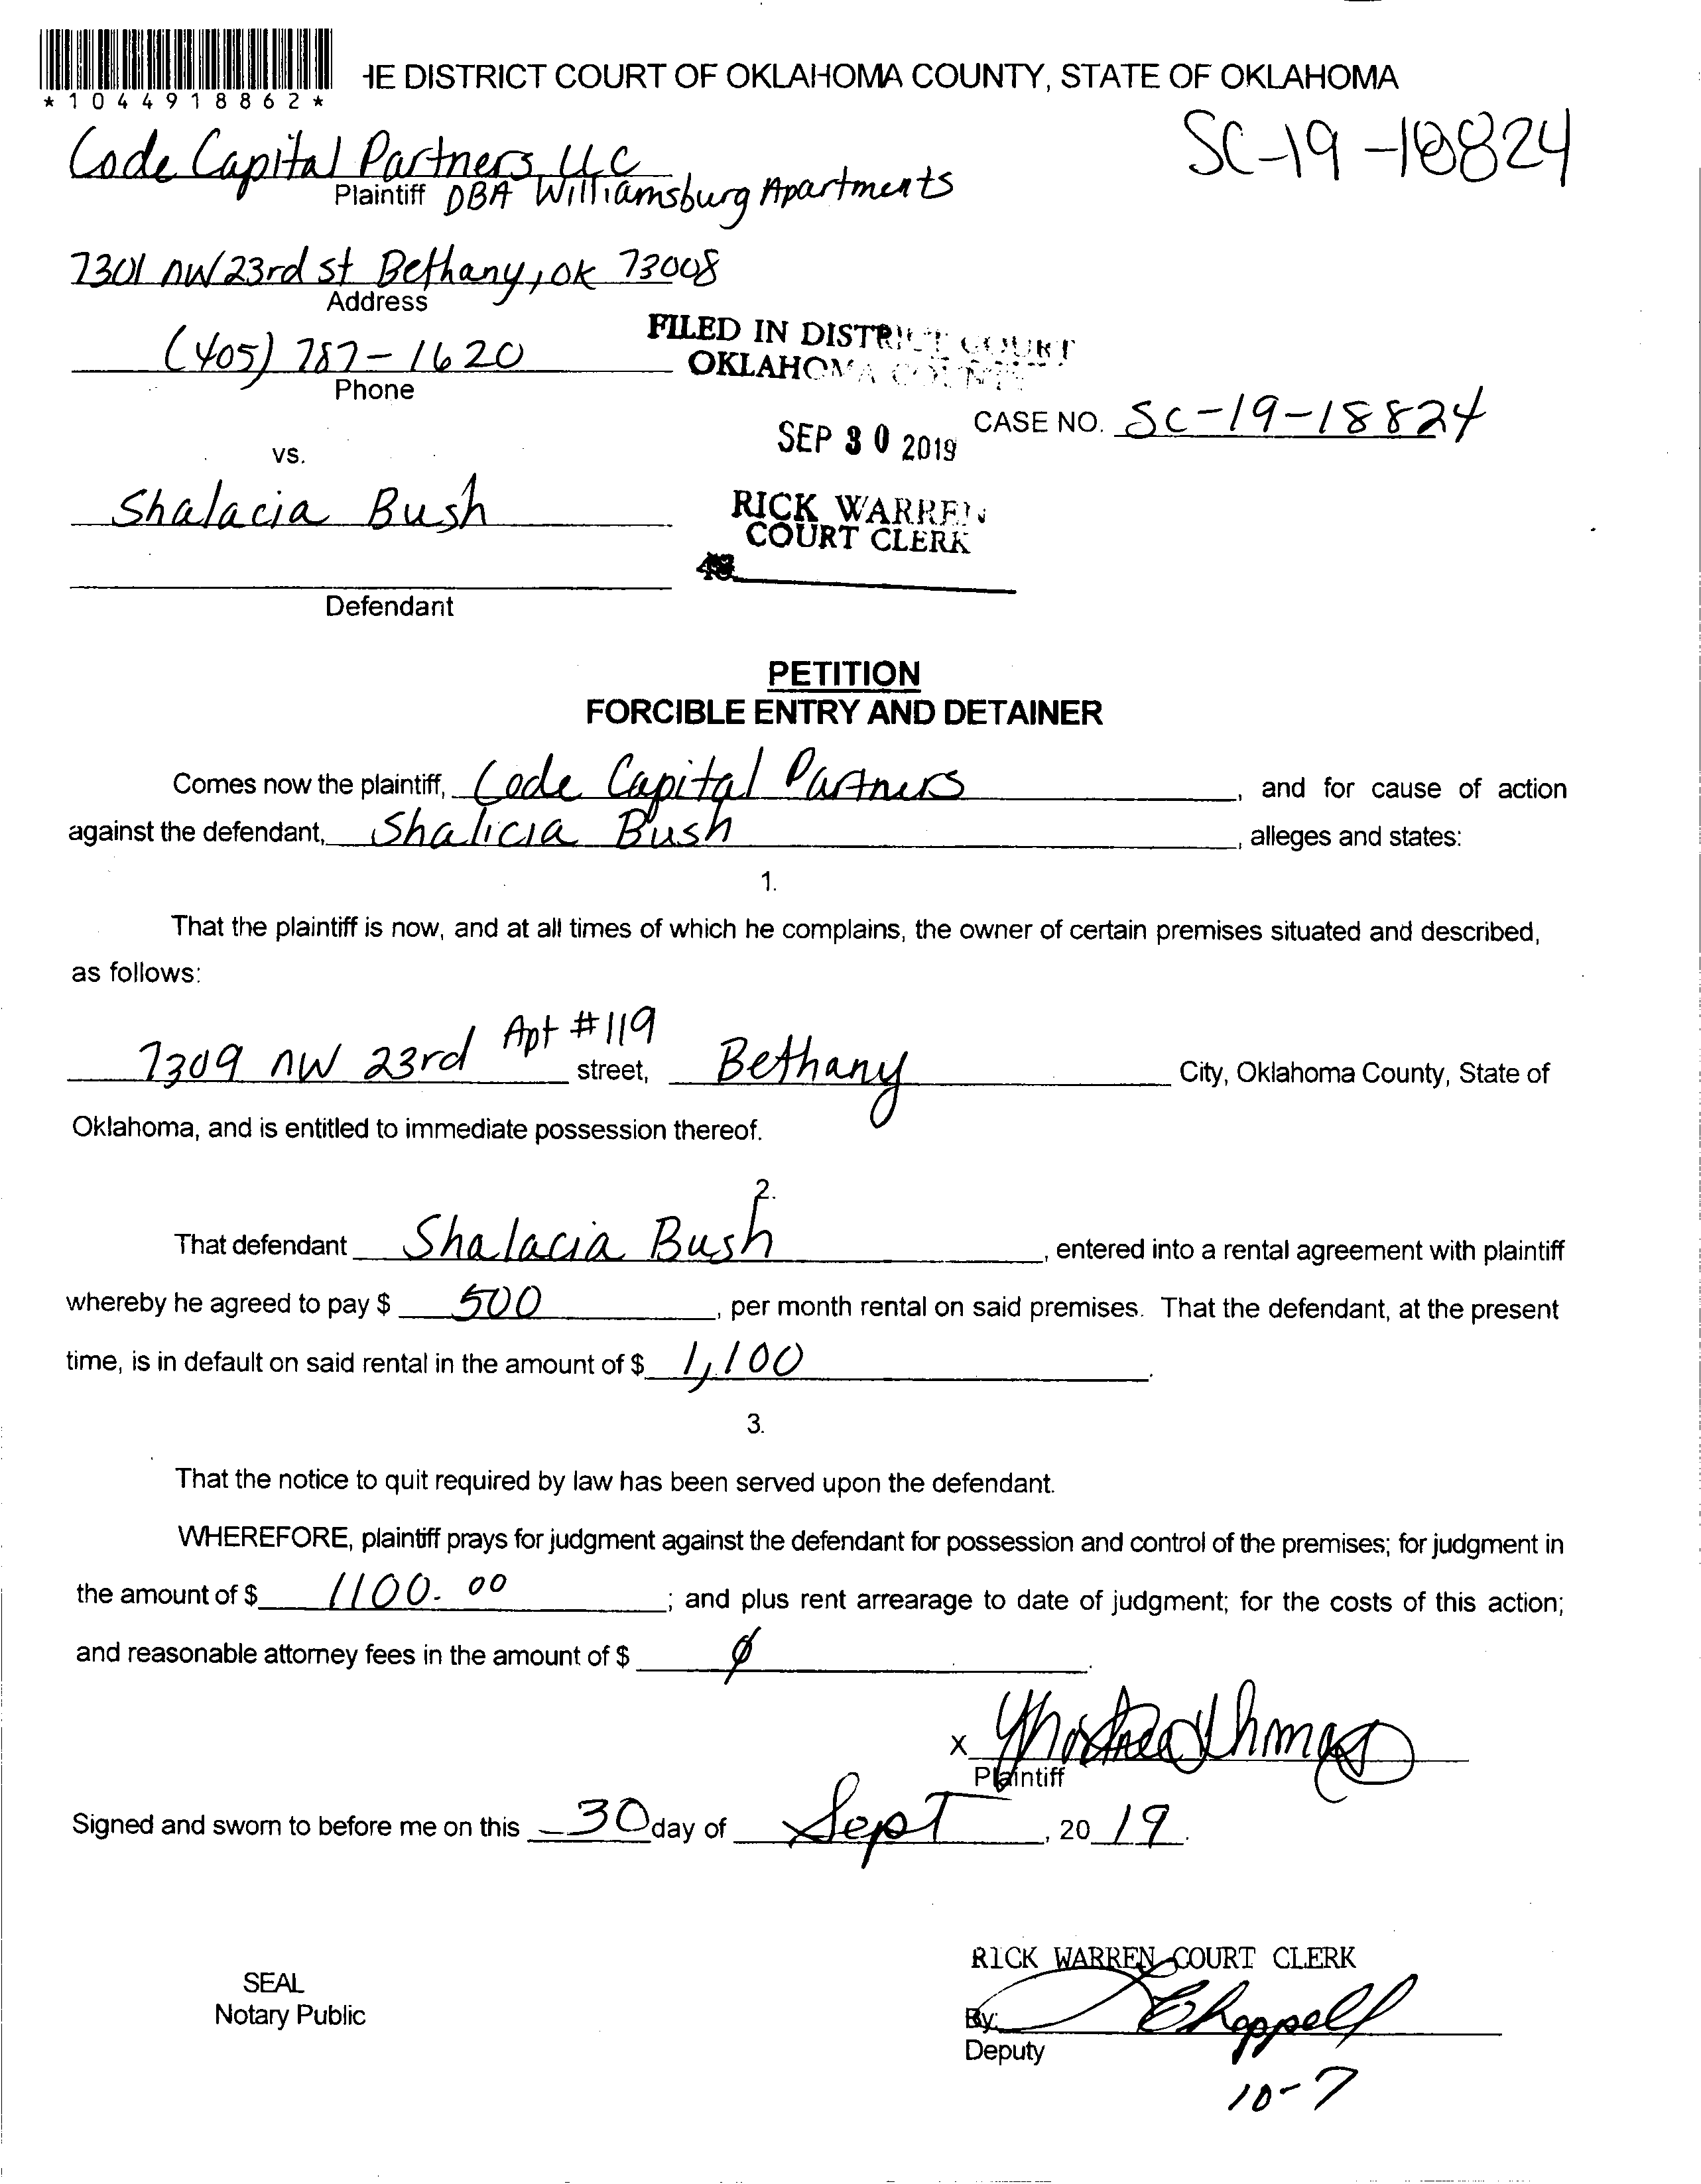 *1044918862*
HE DISTRICT COURT OF OKLAHOMA COUNTY, STATE OF OKLAHOMA
SC-19-18824
Code Capital Partners, LLC
Plaintiff DBA Williamsburg Apartments
7301 NW 23rd st Bethany, OK 73008
Address
(405) 787-1620
Phone
FILED IN DISTRICT COURT
OKLAHOMA COUNTY
SEP 30 2019
CASE NO. SC-19-18824
vs.
Shalacia Bush
RICK WARREN
COURT CLERK
Defendant
PETITION
FORCIBLE ENTRY AND DETAINER
Comes now the plaintiff, Code Capital Partners, and for cause of action
against the defendant, Shalicia Bush, alleges and states:
1.
That the plaintiff is now, and at all times of which he complains, the owner of certain premises situated and described,
as follows:
7309 NW 23rd Apt #119 street, Bethany City, Oklahoma County, State of
Oklahoma, and is entitled to immediate possession thereof.
2.
That defendant Shalacia Bush, entered into a rental agreement with plaintiff
whereby he agreed to pay $ 500, per month rental on said premises. That the defendant, at the present
time, is in default on said rental in the amount of $ 1,100.
3.
That the notice to quit required by law has been served upon the defendant.
WHEREFORE, plaintiff prays for judgment against the defendant for possession and control of the premises; for judgment in
the amount of $ 1100.00; and plus rent arrearage to date of judgment; for the costs of this action;
and reasonable attorney fees in the amount of $ ∅.
x
Plaintiff
Signed and sworn to before me on this 30 day of Sept, 2019.
RICK WARREN COURT CLERK
SEAL
Notary Public
By: Chappell
Deputy
10-7